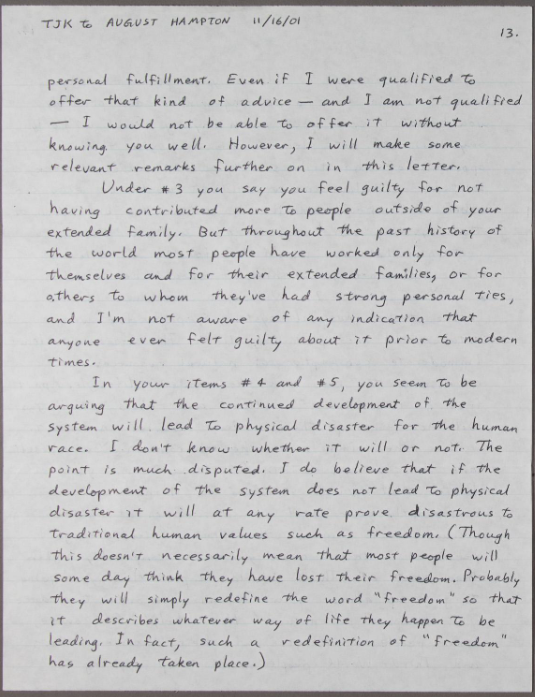 TJK to AUGUST HAMPTON 11/16/01
13.
personal fulfillment. Even if I were qualified to
offer that kind of advice — and I am not qualified
— I would not be able to offer it without
knowing you well. However, I will make some
relevant remarks further on in this letter.
Under #3 you say you feel guilty for not
having contributed more to people outside of your
extended family. But throughout the past history of
the world most people have worked only for
themselves and for their extended families, or for
others to whom they've had strong personal ties,
and I'm not aware of any indication that
anyone ever felt guilty about it prior to modern
times.
In your items #4 and #5, you seem to be
arguing that the continued development of the
system will lead to physical disaster for the human
race. I don't know whether it will or not. The
point is much disputed. I do believe that if the
development of the system does not lead to physical
disaster it will at any rate prove disastrous to
traditional human values such as freedom. (Though
this doesn't necessarily mean that most people will
some day think they have lost their freedom. Probably
they will simply redefine the word "freedom" so that
it describes whatever way of life they happen to be
leading. In fact, such a redefinition of "freedom"
has already taken place.)